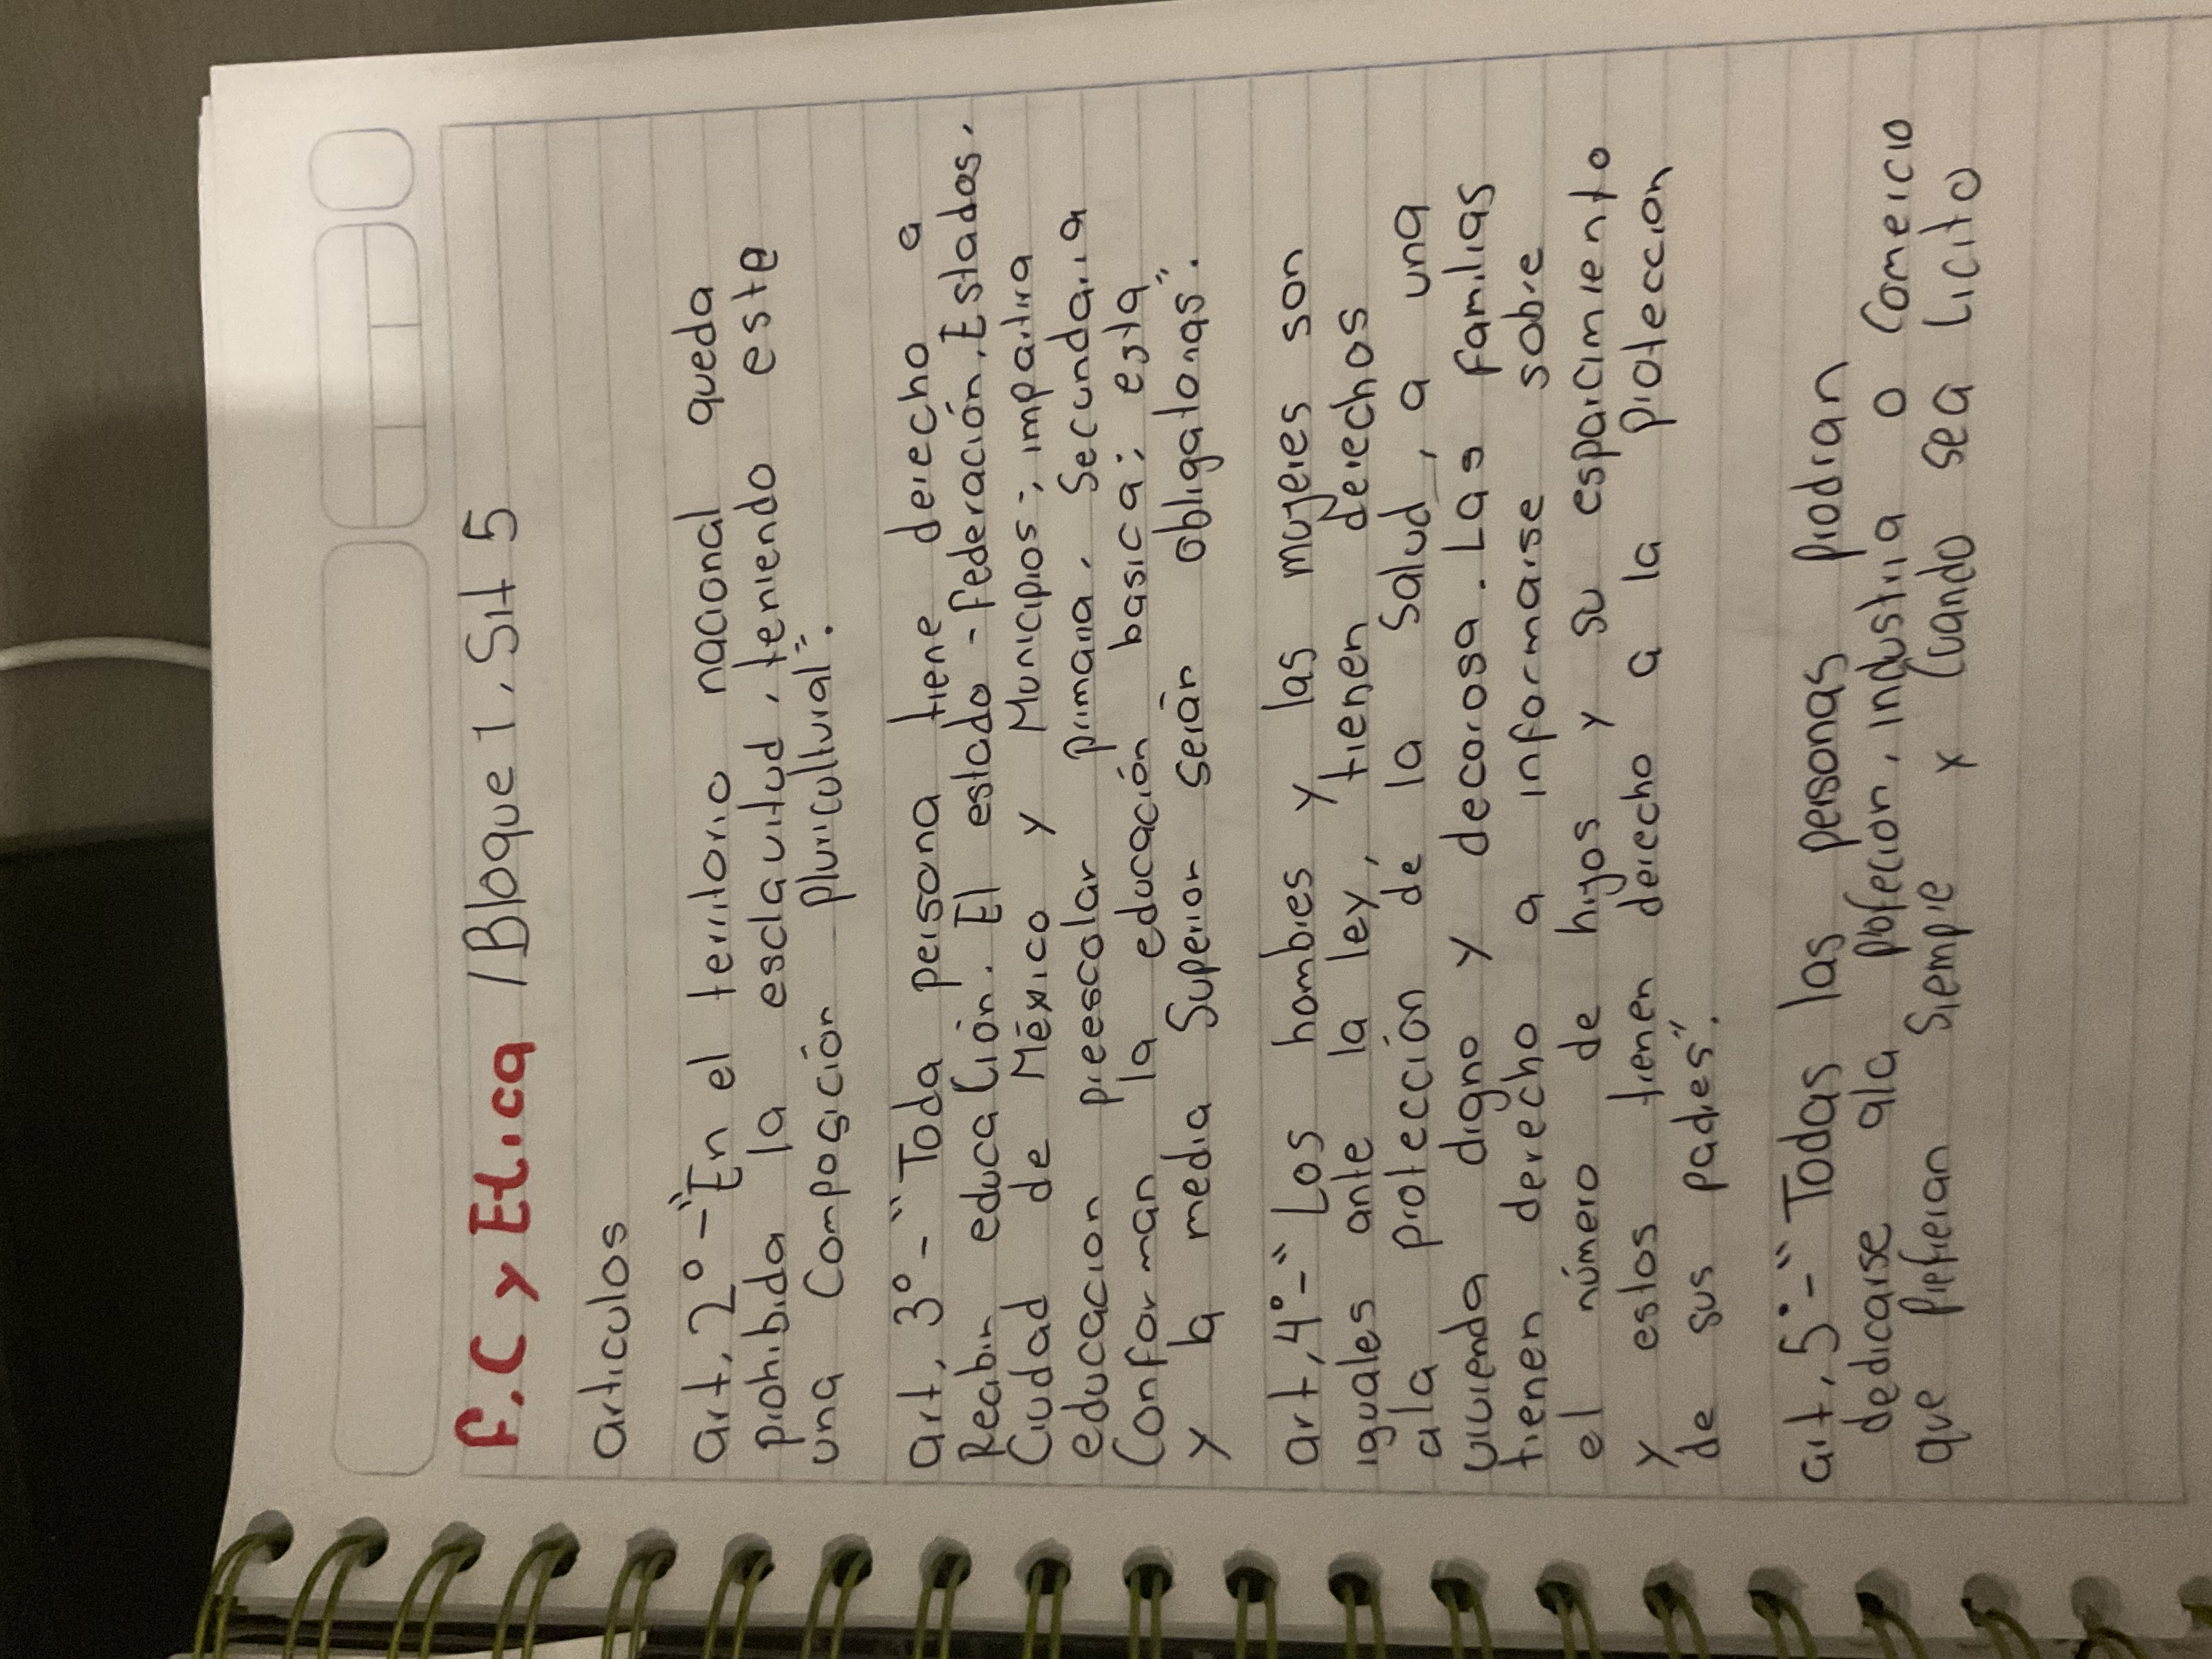 F.C y Etica /Bloque 1, Sit 5
articulos
art, 2° - "En el territorio nacional queda
prohibida la esclavitud, teniendo este
una Composición pluricultural".
art, 3° - "Toda persona tiene derecho a
Recibir educaCión. El estado - Federación, Estados,
Ciudad de México y Municipios-, impartira
educacion preescolar primaria, Secundaria
Conforman la educación basica; esta
y la media Superior serán obligatorias".
art, 4° - "Los hombres y las mujeres son
iguales ante la ley, tienen derechos
ala protección de la Salud, a una
vivienda digno y decorosa. Las familias
tienen derecho a informarse sobre
el número de hijos y su esparcimiento
y estos tienen derecho a la protección
de sus padres".
art, 5° - "Todas las personas prodran
dedicarse ala profecion, industria o Comercio
que prefieran siempre y Cuando sea Licito